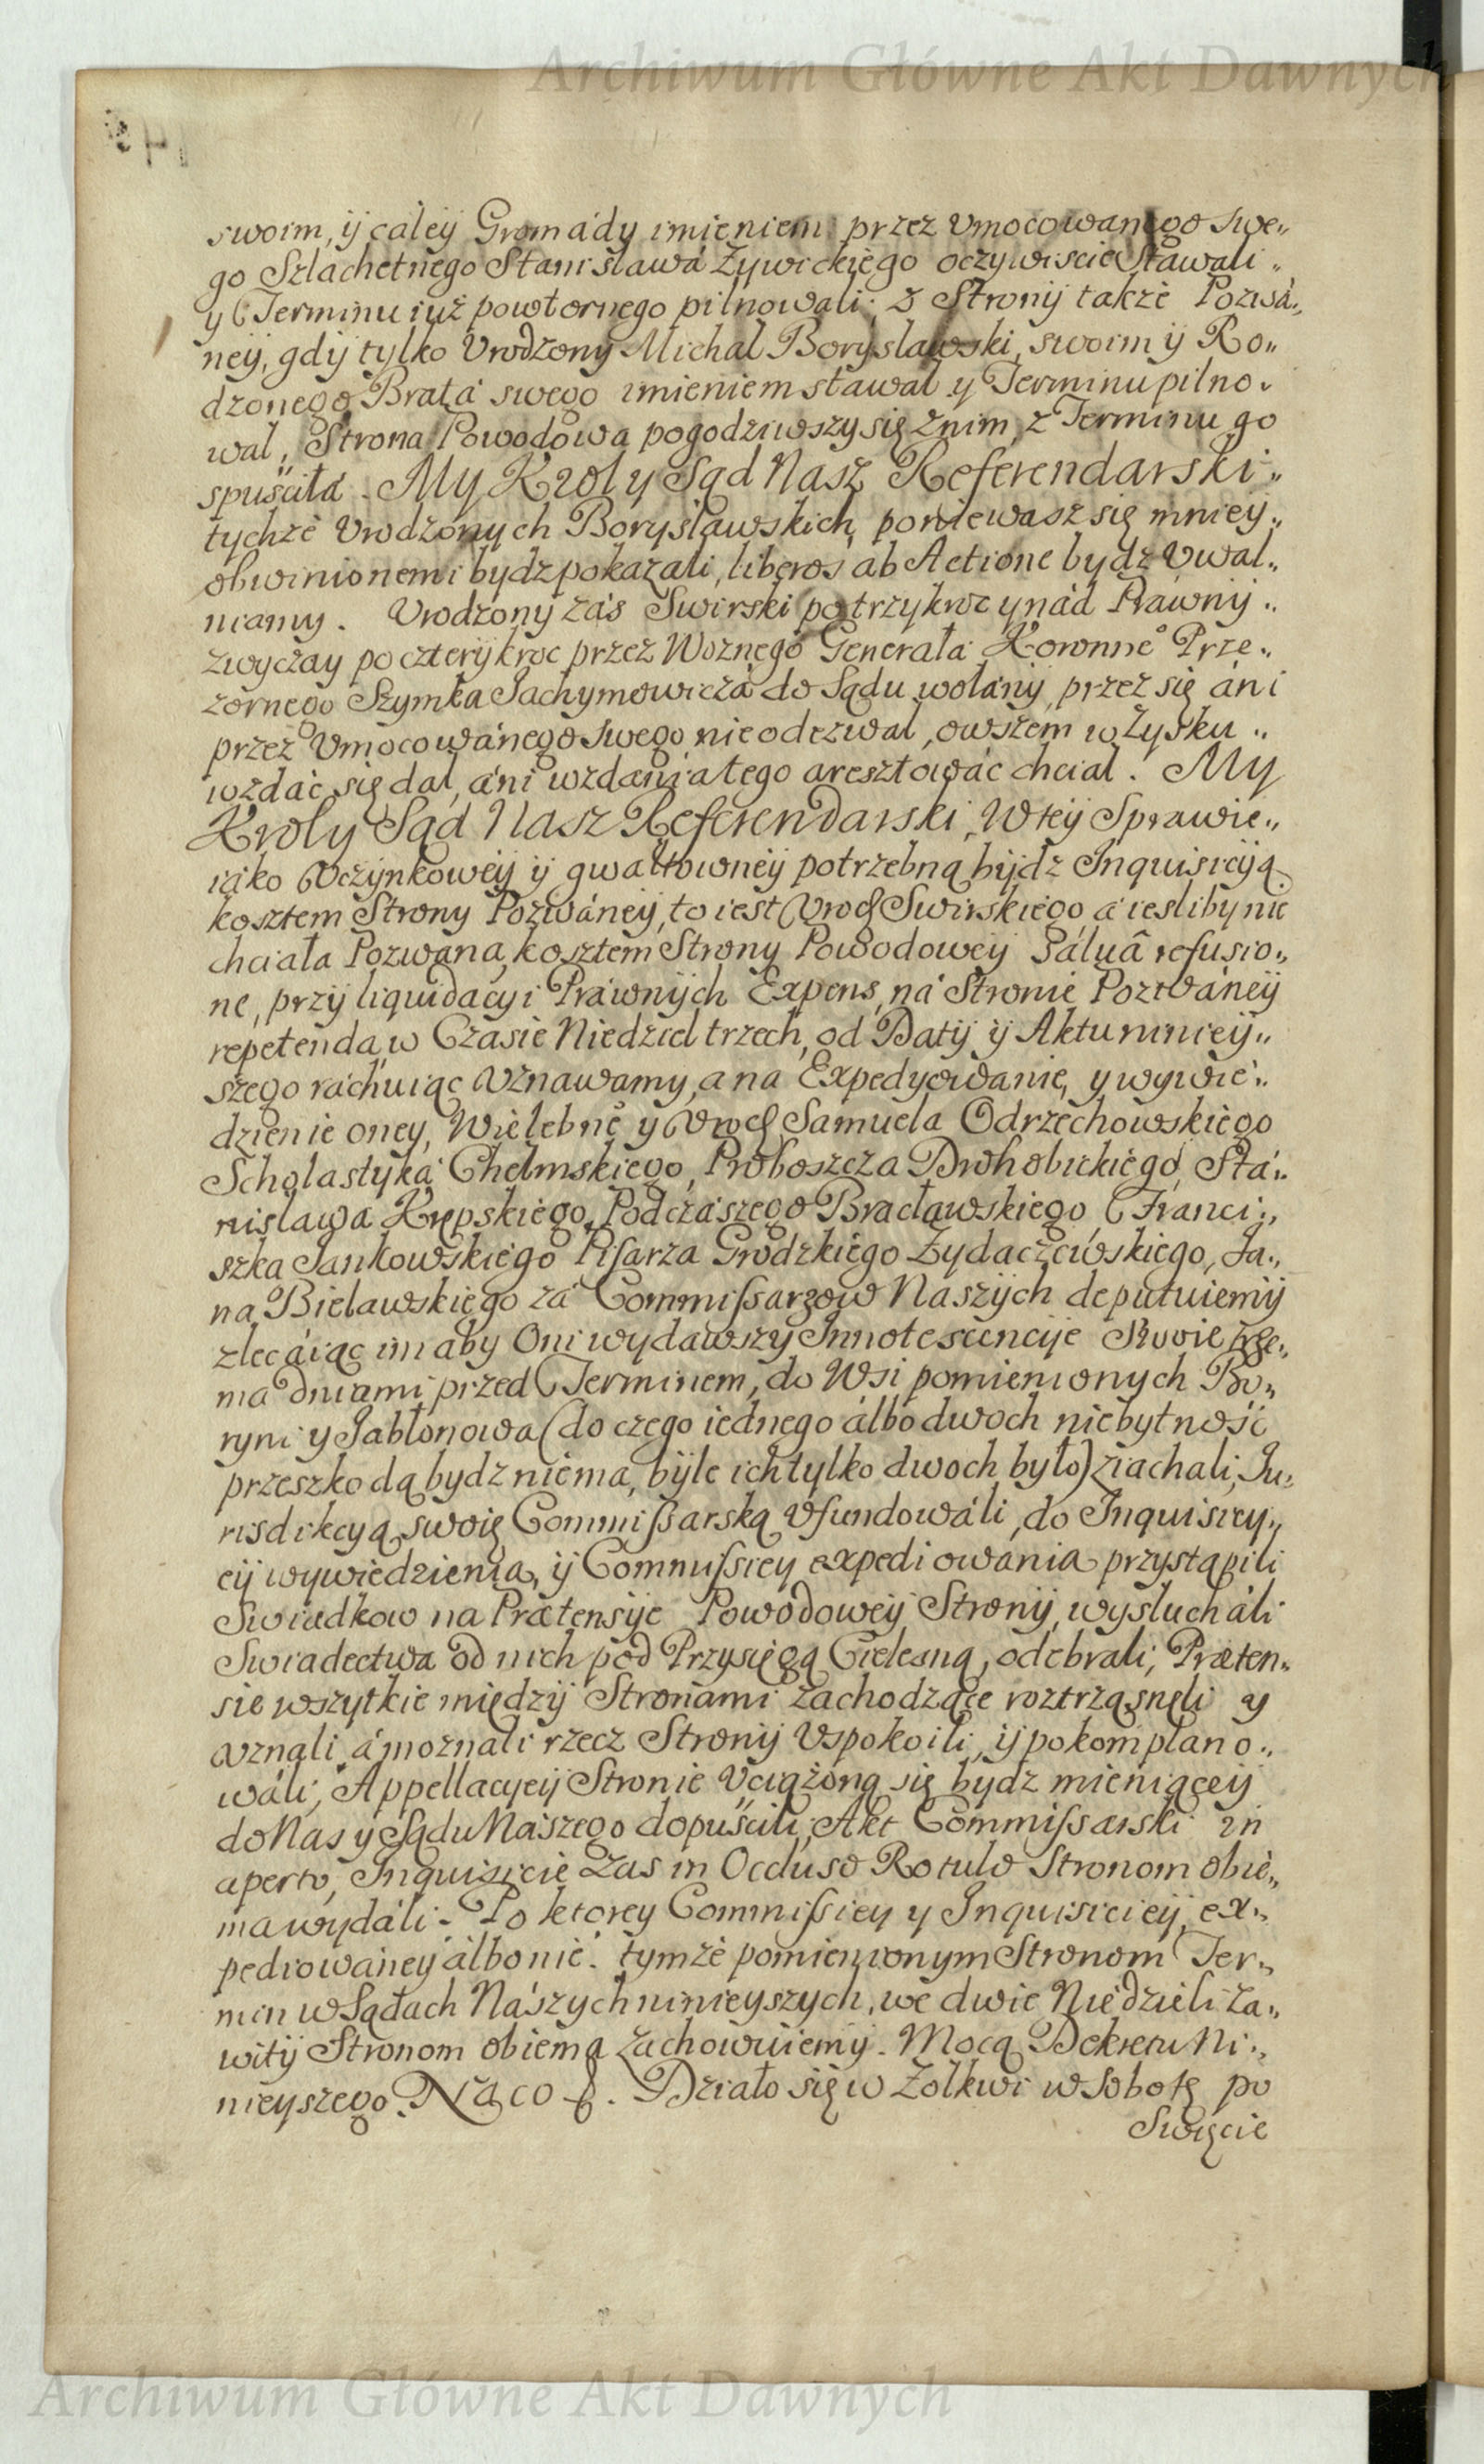 Archiwum Główne Akt Dawnych
swoim, ÿ całeÿ Gromády imieniem przez Vmocowanego swe„
go Szlachetnego Stanisława Żywickiego oczywiscie Stawali„
y Terminu iuż powtornego pilnowali: z Stronÿ także Pozwá„
neÿ, gdÿ tylko Vrodzony Michal Boryslawski, swoim ÿ Ro„
dzonego Brata swego imieniem stawal y Terminu pilno„
wal, Strona Powodowa pogodziwszy się z nim, z Terminu go
spuściła. My Krol y Sąd Nasz Referendarski„
tychże Vrodzonych Boryslawskich, poniewasz się mniey„
obwinionemi bydz pokazali, liberos ab Actione bydz Vwal„
niamy. Vrodzony zás Swirski po trzykroc y nád Prawnÿ„
zwyczay po czterÿkroc przez Woznego Generała Koronneo Prze„
zornego Szymka Jachymowicza do Sądu wolanÿ, przez się áni
przez Vmocowánego swego nie odezwal, owszem w Zysku„
wzdác się dal, áni wzdania tego aresztowác chcial. My
Krol y Sąd Nasz Referendarski, W teÿ Sprawie„
iáko Vczynkoweÿ ÿ gwałtowneÿ potrzebną bÿdz Inquisicÿą
kosztem Strony Pozwáneÿ, to iest Vrod Swirskiego, á iesliby nie
chciała Pozwana, kosztem Strony Powodoweÿ Salvâ refusio„
ne, przÿ liquidacyi Práwnÿch Expens, ná Stronie Pozwáneÿ
repetenda, w Czasie Niedziel trzech, od Datÿ ÿ Aktu niniey„
szego ráchuiąc Vznawamy, a na Expedyowanie, y wywie„
dzienie oney, Wielebneo y Vrod Samuela Odrzechowskiego
Scholastyka Chelmskiego, Proboszcza Drohobickiego, Stá„
nisława Krępskiego, Podczászego Bracławskiego, Franci„
szka Jankowskiego Pisarza Grodzkiego Zydaczewskiego, Ja„
na Bielawskiego zá Commissarzow Naszÿch deputuiemÿ
zlecáiąc im aby Oni wydawszy Innotescencÿe Swoie trze„
ma dniami przed Terminem, do Wsi pomienionych Bo„
ryni y Jabłonowa (do czego iednego álbo dwoch niebytność
przeszkodą bydz niema, bÿle ich tylko dwoch było) ziachali, Ju„
risdikcyą swoię Commissarską Vfundowáli, do Inquisicy„
eÿ wywiedzienia, ÿ Commissiey expediowania przystąpili
Swiadkow na Prætensÿe Powodoweÿ Stronÿ, wysłucháli
Swiadectwa od nich pod Przysięgą Cielesną, odebrali, Præten„
sie wszytkie międzÿ Stronami zachodzące roztrząsnęli y
Vznali, á moznali rzecz Stronÿ Vspokoili, ÿ pokomplano„
wáli, Appellacyeÿ Stronie Vciążoną się bydz mieniąceÿ
do Nas y Sądu Nászego dopuścili, Akt Commissarski in
aperto, Inquisicie zas in Occluso Rotulo Stronom obie„
ma wydáli. Po ktorey Commissiey y Inquisicieÿ ex„
pediowáney álbo nie. tymże pomienionym Stronom Ter„
min w Sądach Nászych ninieyszych, we dwie Niedzieli Za„
witÿ Stronom obiema zachowuiemÿ. Mocą Dekretu Ni„
nieyszego. Na co &. Działo się w Zolkwi w Sobotę po
Swięcie
Archiwum Główne Akt Dawnych